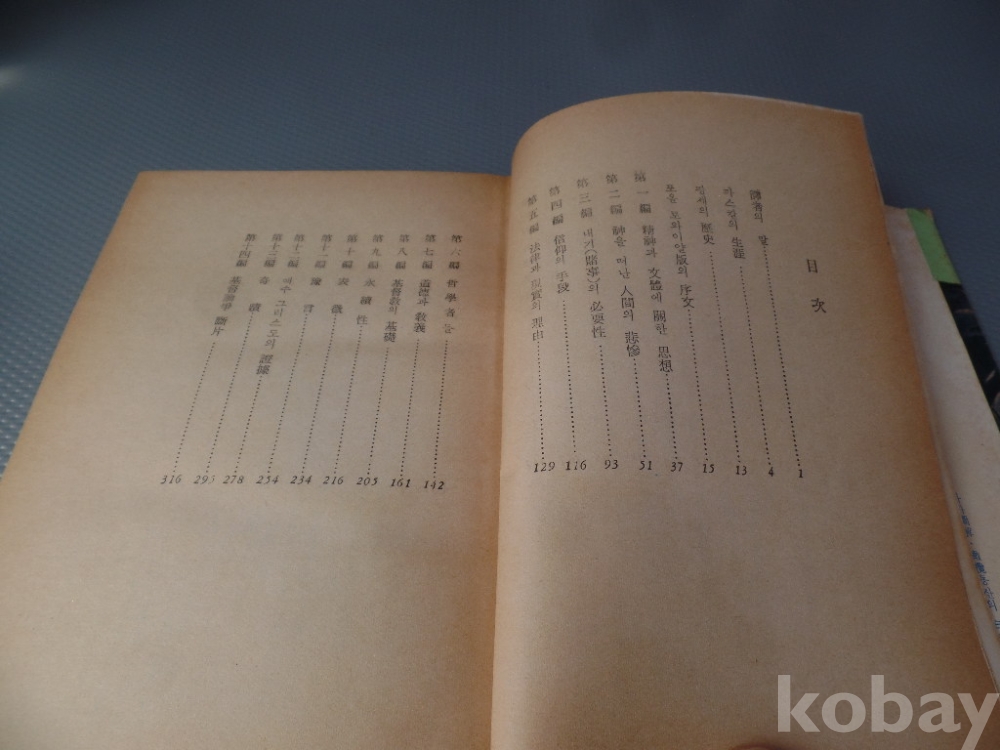 目次
譯者의 말 1
파스칼의 生涯 4
팡세의 歷史 13
포올 로와이얄版의 序文 15
第一編 精神과 文體에 關한 思想 37
第二編 神을 떠난 人間의 悲慘 51
第三編 내기(賭事)의 必要性 93
第四編 信仰의 手段 116
第五編 法律과 現實의 理由 129
第六編 哲學者들 142
第七編 道德과 敎義 161
第八編 基督敎의 基礎 205
第九編 永續性 216
第十編 表徵 234
第十一編 豫言 254
第十二編 예수 그리스도의 證據 278
第十三編 奇蹟 295
第十四編 斷片 316
kobay